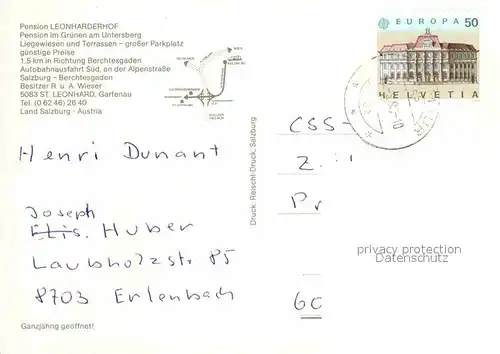 Pension LEONHARDERHOF
Pension im Grünen am Untersberg
Liegewiesen und Terrassen – großer Parkplatz
günstige Preise
1,5 km in Richtung Berchtesgaden
Autobahnausfahrt Süd, an der Alpenstraße
Salzburg – Berchtesgaden
Besitzer R. u. A. Wieser
5083 ST. LEONHARD, Gartenau
Tel. (0 62 46) 26 40
Land Salzburg - Austria
EUROPA 50
HELVETIA
Henri Dunant
Joseph
Elis. Huber
Laubholzstr 85
8703 Erlenbach
Ganzjährig geöffnet!
Druck: Reischl-Druck, Salzburg
CSS-
Z
Pr
60
privacy protection
Datenschutz